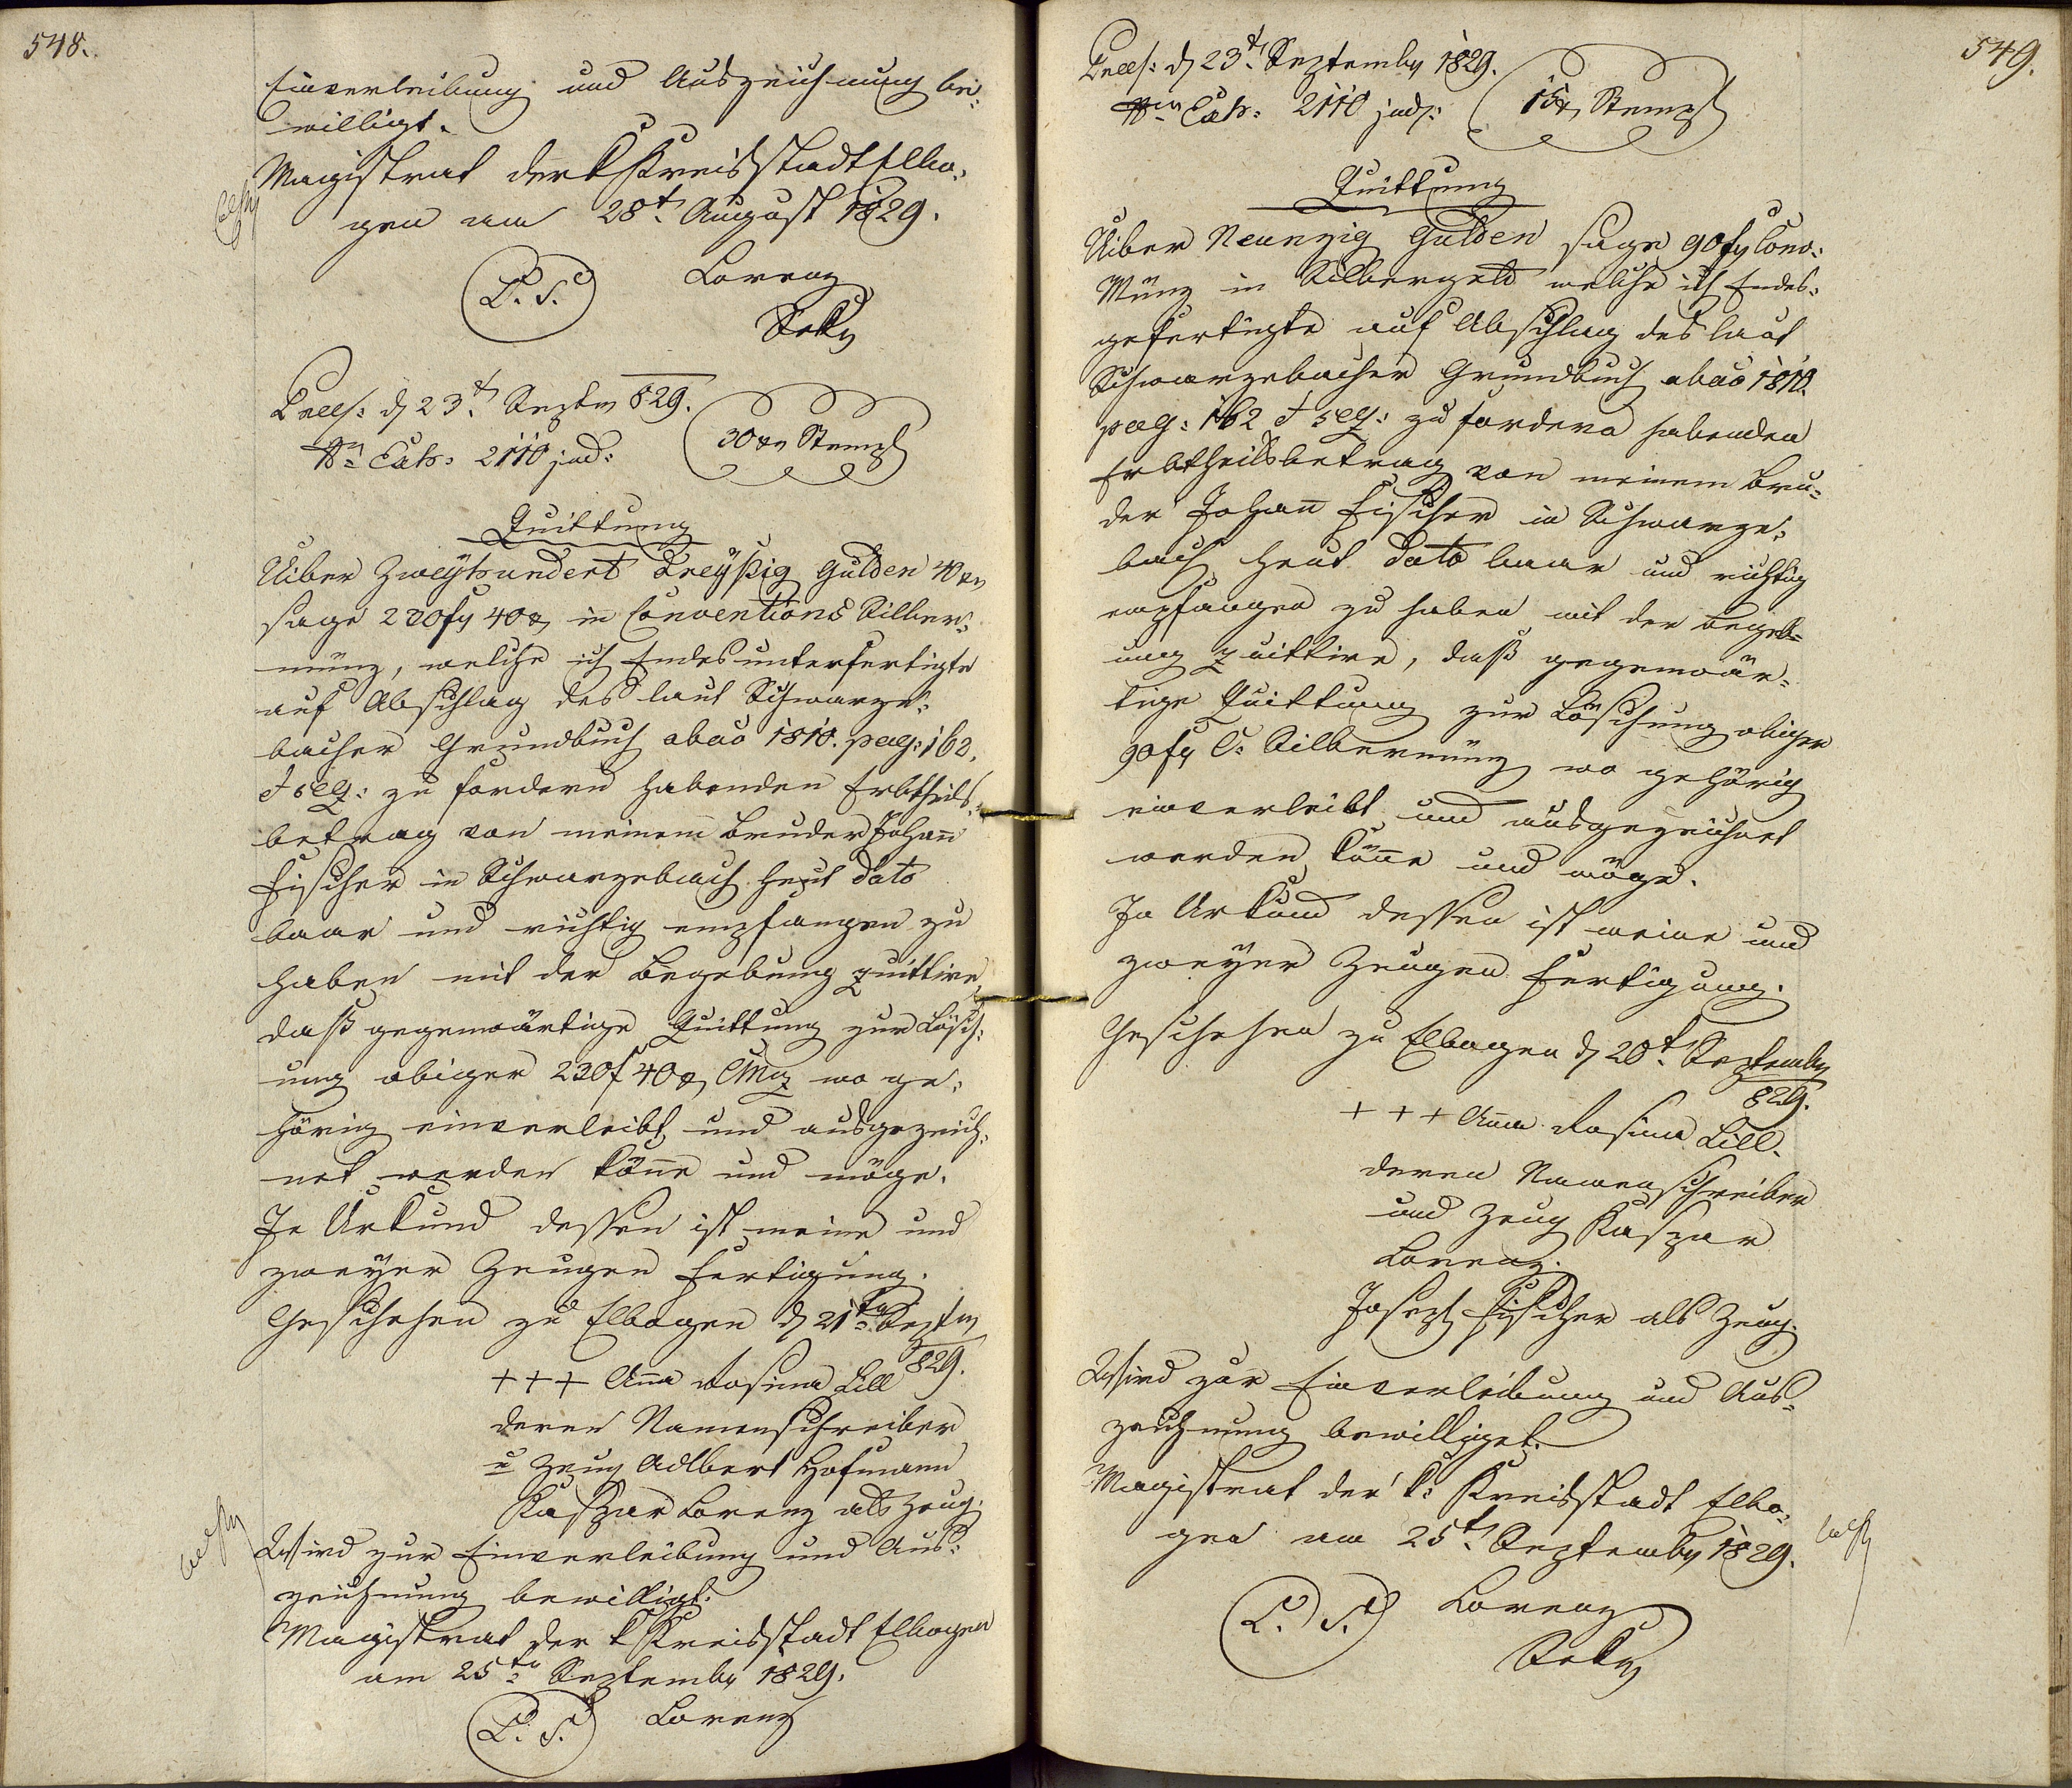 548.
Einverleibung und Auszeichnung be-
willigt.
Magistrat der k Kreisstadt Elbo-
gen am 28t. August 1829.
L. S. Lorenz
Sekr
Präs: d 23t. Septr 829.
Nro Exh: 2110 jud:
30 xr Stempl
Quittung
Uiber Zweyhundert Dreyßig Gulden 40 xr
sage 230 fr 40 x in Conventions Silber-
münz, welche ich Endesunterfertigte
auf Abschlag des laut Schwarze-
bacher Grundbuch abao 1810. pag: 162.
et seq: zu fordern habenden Erbtheils-
betrag von meinem Bruder Johann
Fischer in Schwarzebach heut dato
baar und richtig empfangen zu
haben mit der Begebung quittire,
daß gegenwärtige Quittung zur Lösch-
ung obiger 230 f 40 x CMz wo ge-
hörig einverleibt und ausgezeich-
net werden könne und möge.
In Urkund dessen ist meine und
zweyer Zeugen Fertigung.
Geschehen zu Elbogen d 21ten Septr
829.
+++ Anna Rosina Lill
deren Namenschreiber
u Zeug Adlbert Hofmann
Kaspar Lorenz als Zeug.
Wird zur Einverleibung und Aus-
zeichnung bewilligt.
Magistrat der k Kreisstadt Elbogen
am 25ten Septembr 1829.
L. S. Lorenz
549.
Präs: d 23t. Septembr 1829.
Nro Exh: 2110 jud:
15 x Stempl
Quittung
Uiber Neunzig Gulden sage 90 fr Conv:
Münz in Silbergeld welche ich Endes-
gefertigte auf Abschlag des laut
Schwarzebacher Grundbuch abao 1810.
pag: 162 et seq: zu fordern habenden
Erbtheilsbetrag von meinem Bru-
der Johann Fischer in Schwarze-
bach heut dato baar und richtig
empfangen zu haben mit der Begeb-
ung quittire, daß gegenwär-
tige Quittung zur Löschung obiger
90 fr C: Silbermünz wo gehörig
einverleibt und ausgezeichnet
werden könne und möge.
In Urkund dessen ist meine und
zweyer Zeugen Fertigung.
Geschehen zu Elbogen d 20t. Septembr
829.
+++ Anna Rosina Lill.
deren Namenschreiber
und Zeug Kaspar
Lorenz.
Joseph Fischer als Zeug.
Wird zur Einverleibung und Aus-
zeichnung bewilliget.
Magistrat der k: Kreisstadt Elbo-
gen am 25t. Septembr 1829.
L. S. Lorenz
Sekr